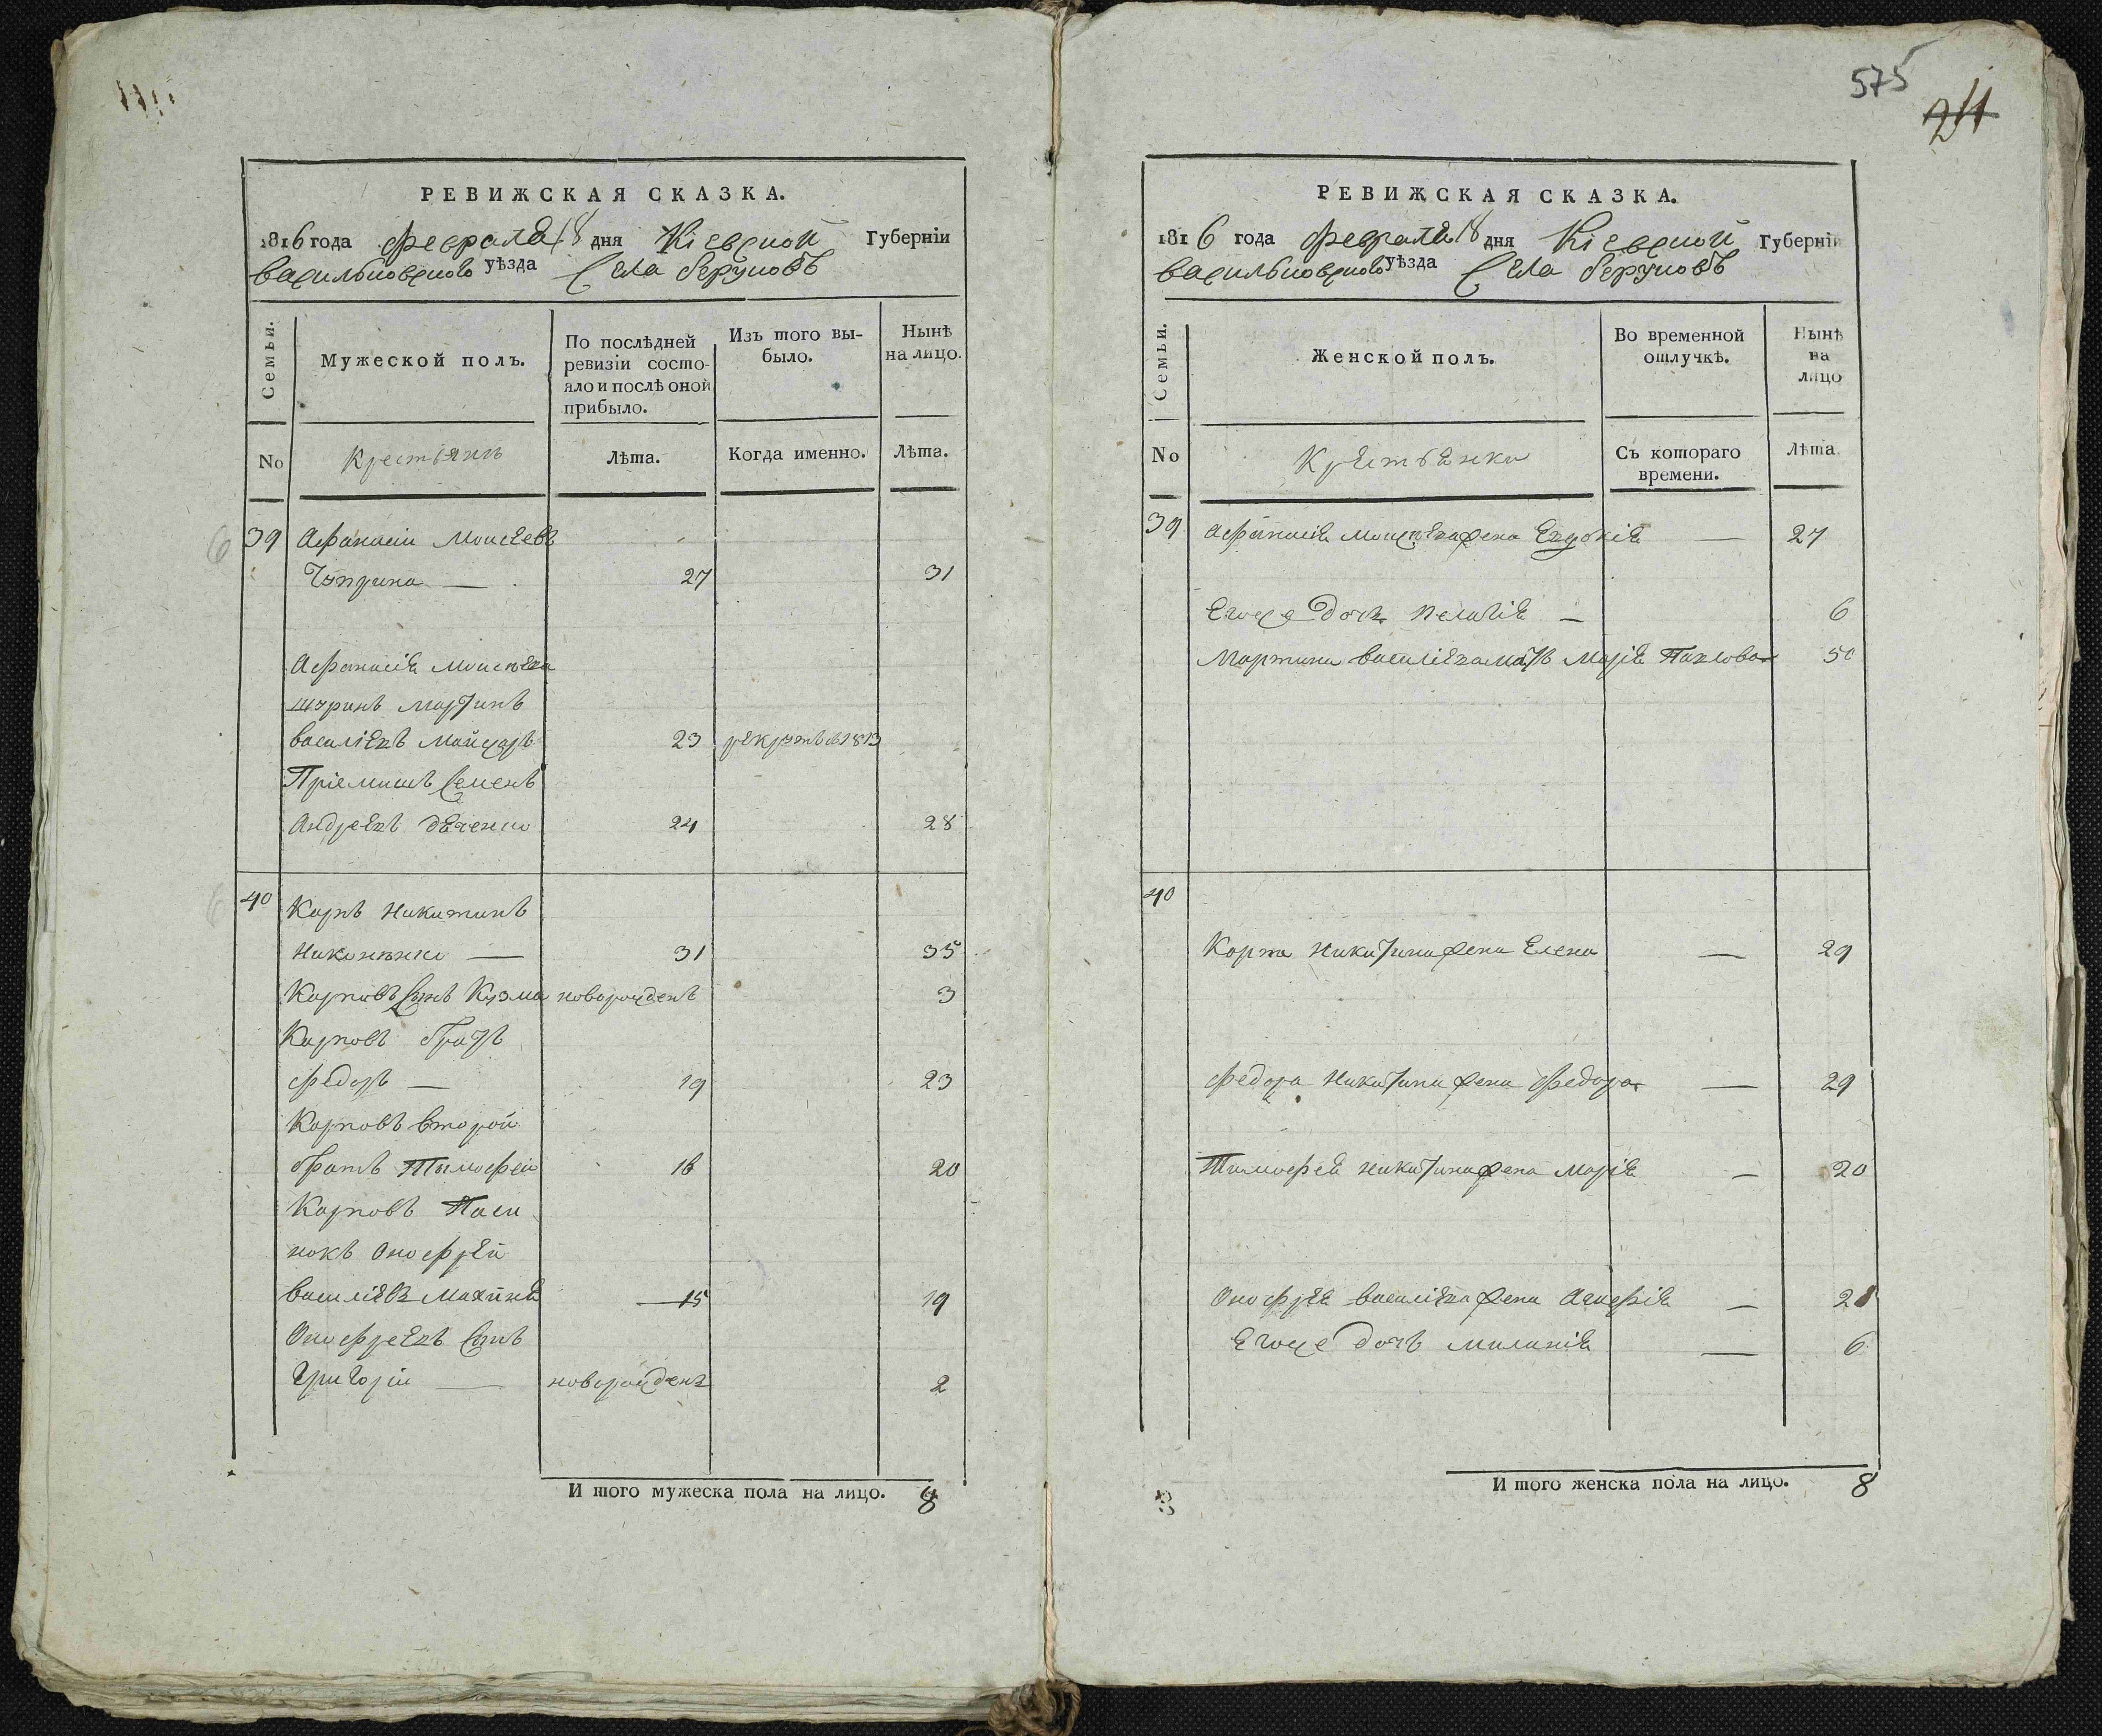 575
РЕВИЖСКАЯ СКАЗКА.
1816 года Февраля 18 дня Кіевской Губерніи
Васильковского уѣзда Села
Семьи.
Мужеской полъ.
По послѣдней ревизіи состояло и послѣ оной прибыло.
Изъ того выбыло.
Нынѣ на лицо.
No
Крестьянъ
Лѣта.
Когда именно.
Лѣта.
39 Афанасіи Моисеевъ
Чуприна — 27 31
Афанасія Моисѣева
шуринъ Мартинъ
Василіевъ 23 рекрутъ в 1813
Пріемишъ Семенъ
Андреевъ 24 28
40 Карпъ Никитинъ
— 31 35
Карповъ Сынъ Кузма новорожденъ 3
Карповъ братъ
Федоръ — 19 23
Карповъ второй
братъ Тимофей 16 20
Карповъ Пасы
нокъ Онофрей
Василіевъ 15 19
Онофреевъ Сынъ
Григоріи — новорожденъ 2
И того мужеска пола на лицо. 8
РЕВИЖСКАЯ СКАЗКА.
1816 года Февраля 18 дня Кіевской Губерніи
Васильковского уѣзда Села
Семьи.
Женской полъ.
Во временной отлучкѣ.
Нынѣ на лицо
No
Крестьянки
Съ котораго времени.
Лѣта
39 Афанасія Моисѣева жена Евдокія — 27
Егоже дочь Пелагія — 6
Мартина Василіева мать Марія Павлова
40
Карпа Никитина жена Елена — 29
Федора Никитина жена Федора — 29
Тимофея Никитина жена Марія — 20
Онофрея Василіева жена Агафія —
Егоже дочь Миланія — 6
И того женска пола на лицо. 8